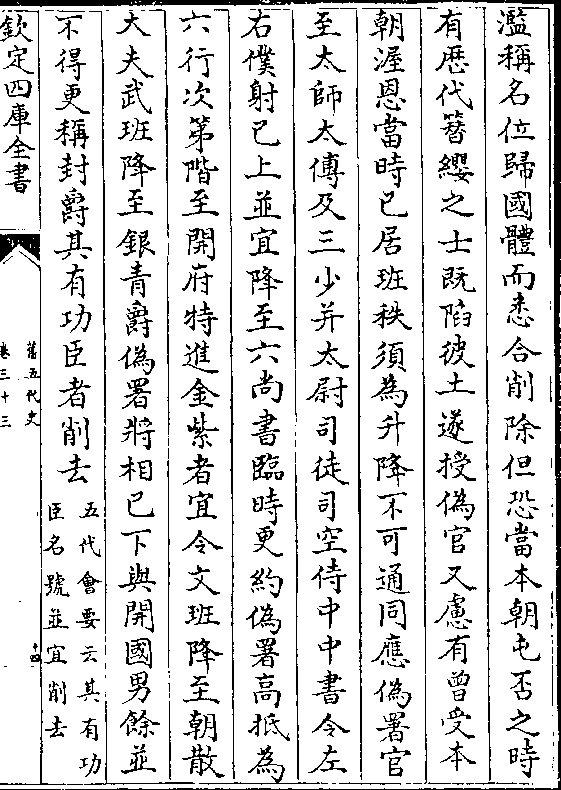 濫稱名位歸國體而悉合削除但恐當本朝屯否之時
有歴代簪纓之士既陷彼土遂授偽官又慮有曾受本
朝渥恩當時已居班秩須為升降不可通同應偽署官
至太師太傅及三少并太尉司徒司空侍中中書令左
右僕射已上並宜降至六尚書臨時更約偽署高抵為
六行次第階至開府特進金紫者宜令文班降至朝散
大夫武班降至銀青爵偽署將相已下與開國男餘並
不得更稱封爵其有功臣者削去
五代會要云其有功
臣名號並宜削去
欽定四庫全書
舊五代史
卷三十三
十四